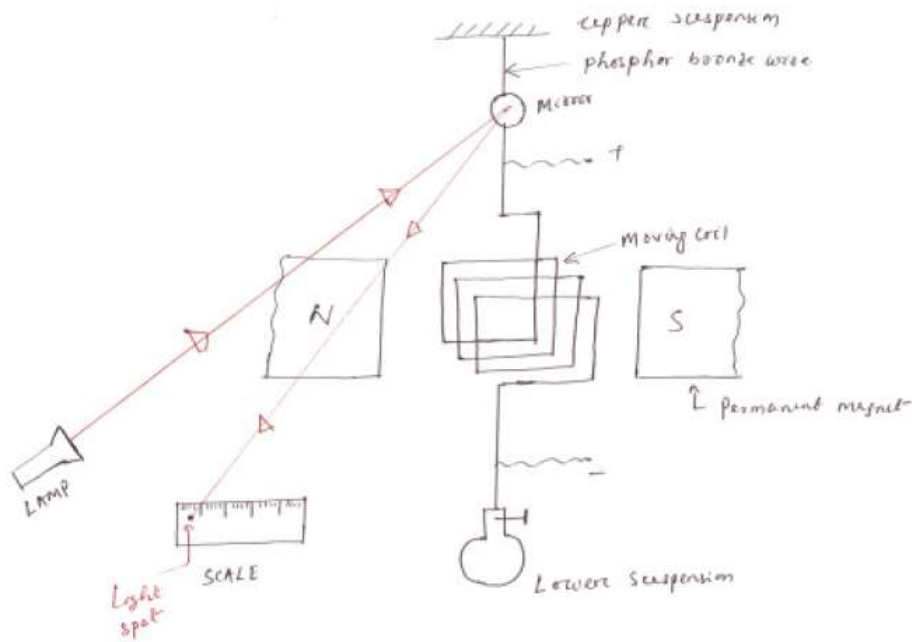 uppere suspension
phosphor bronze wire
Mirror
+
Moving coil
N
S
Permanent magnet
LAMP
-
SCALE
Light
spot
Lowere suspension